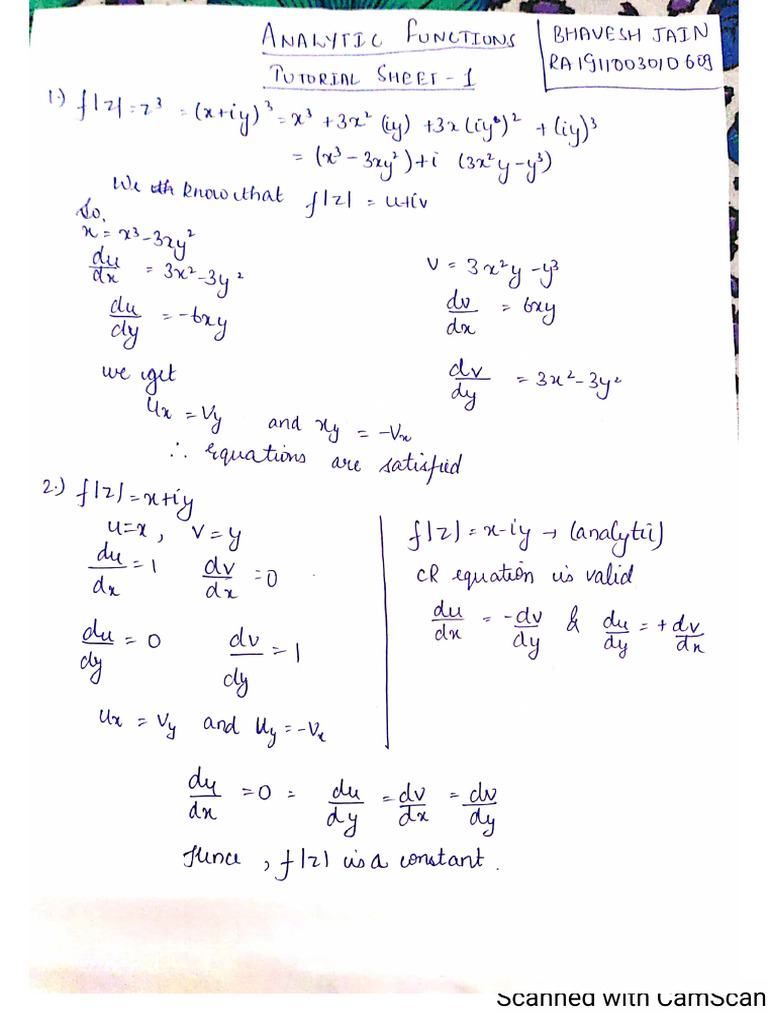 ANALYTIC FUNCTIONS
TUTORIAL SHEET-1
BHAVESH JAIN
RA1911003010609
1.) f|z|=z³ = (x+iy)³ = x³ + 3x² (iy) + 3x (iy)² + (iy)³
= (x³ - 3xy²) + i (3x²y - y³)
We know that f|z| = u+iv
So,
x = x³-3xy²
du/dx = 3x²-3y²
du/dy = -6xy
v = 3x²y - y³
dv/dx = 6xy
dv/dy = 3x²-3y²
we get
ux = vy and xy = -vx
∴ equations are satisfied
2.) f|z|=x+iy
u=x, v=y
du/dx = 1 dv/dx = 0
du/dy = 0 dv/dy = 1
ux = vy and uy = -vx
f|z| = x-iy → (analytic)
CR equation is valid
du/dx = -dv/dy & du/dy = +dv/dx
dy/dx = 0 = du/dy = dv/dx = dv/dy
Hence, f|z| is a constant.
Scanned with CamScan